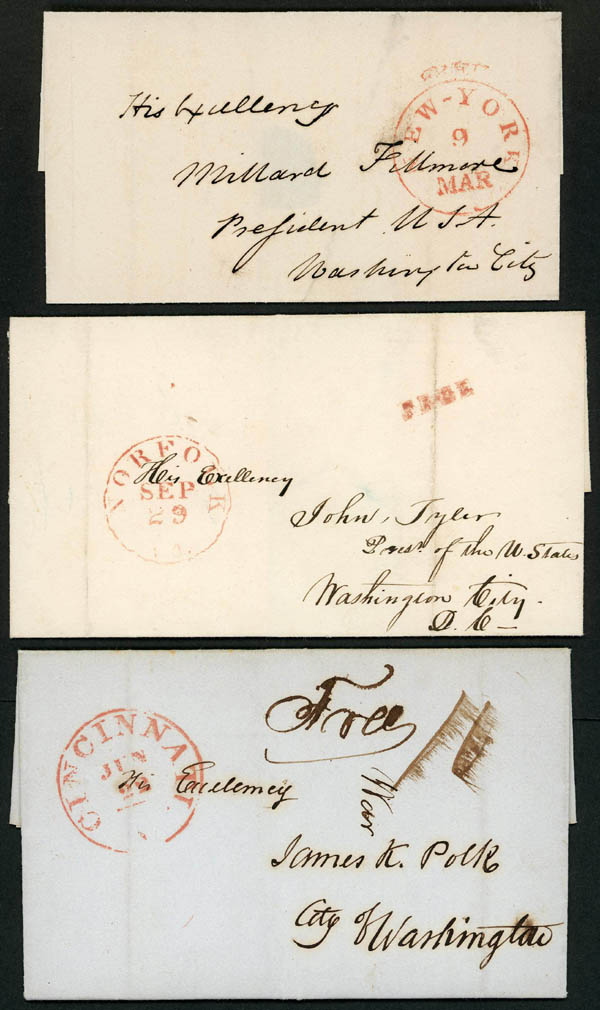 His Excellency
Millard Fillmore
President U S A.
Washington City
NEW-YORK
9
MAR
FREE
NORFOLK
SEP
29
His Excellency
John Tyler
Prest. of the U. States
Washington City.
D. C –
Free
CINCINNATI
JUN
His Excellency
War
James K. Polk
City of Washington